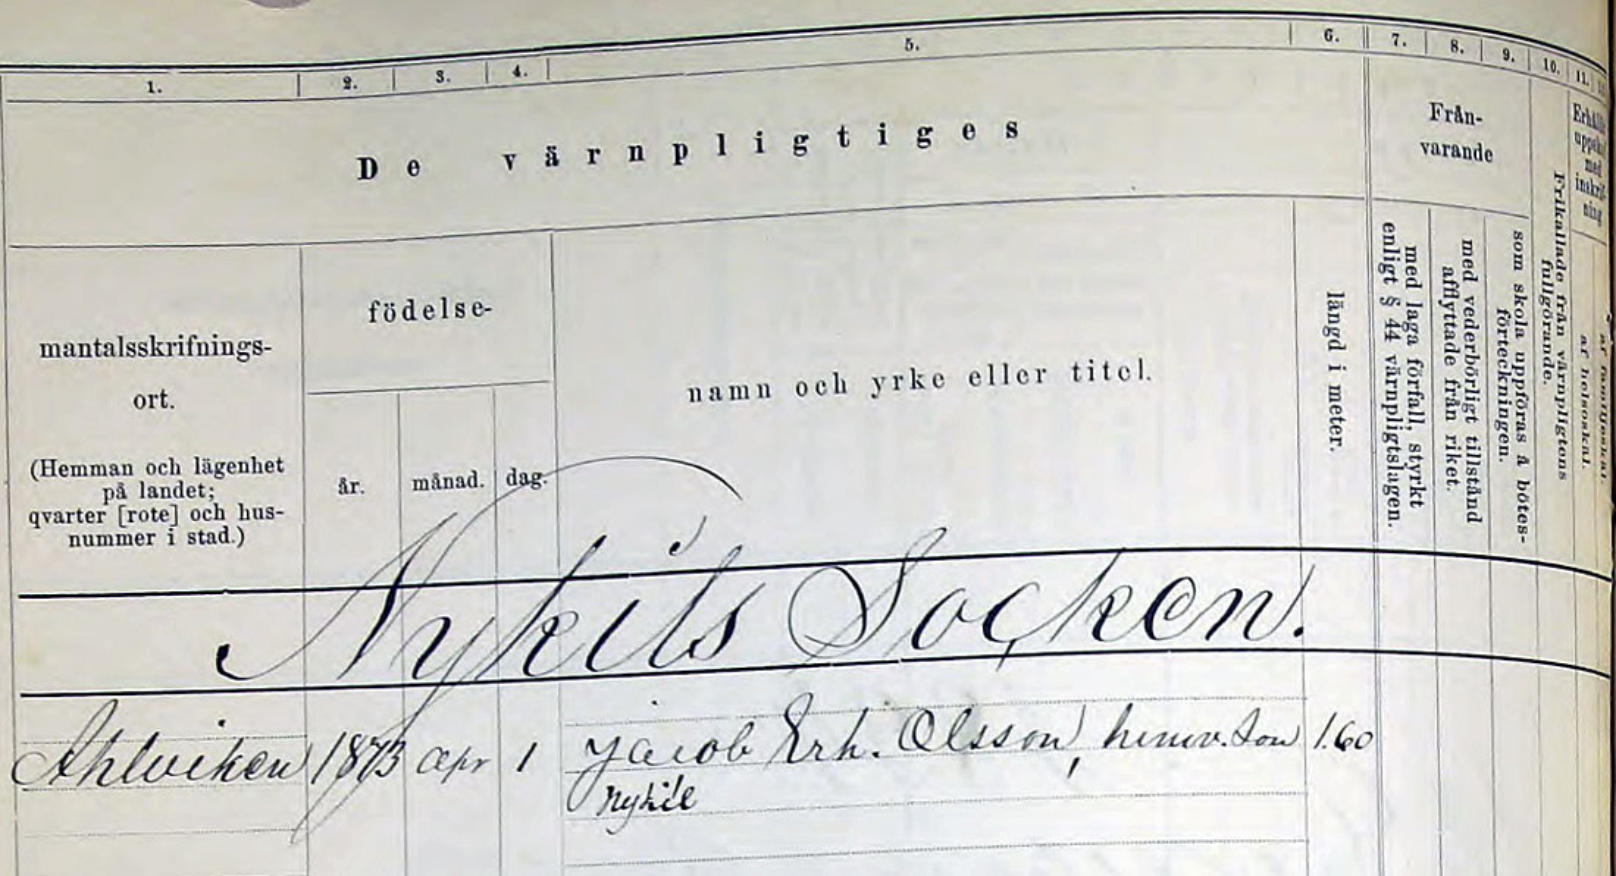 1. 2. 3. 4. 5. 6. 7. 8. 9. 10. 11.
De värnpligtiges
Från-
varande
mantalsskrifnings-
ort.
(Hemman och lägenhet
på landet;
qvarter [rote] och hus-
nummer i stad.)
födelse-
år. månad. dag.
namn och yrke eller titel.
längd i meter.
med laga förfall, styrkt
enligt § 44 värnpligtslagen.
med vederbörligt tillstånd
afflyttade från riket.
som skola uppföras å bötes-
förteckningen.
Frikallade från värnpligtens
fullgörande.
med
inskrif-
ning
af helsoskäl.
af familjeskäl.
Nykils Socken.
Ahlviken 1873 apr 1 Jacob Erh. Olsson, hemv. son 1.60
Nykil